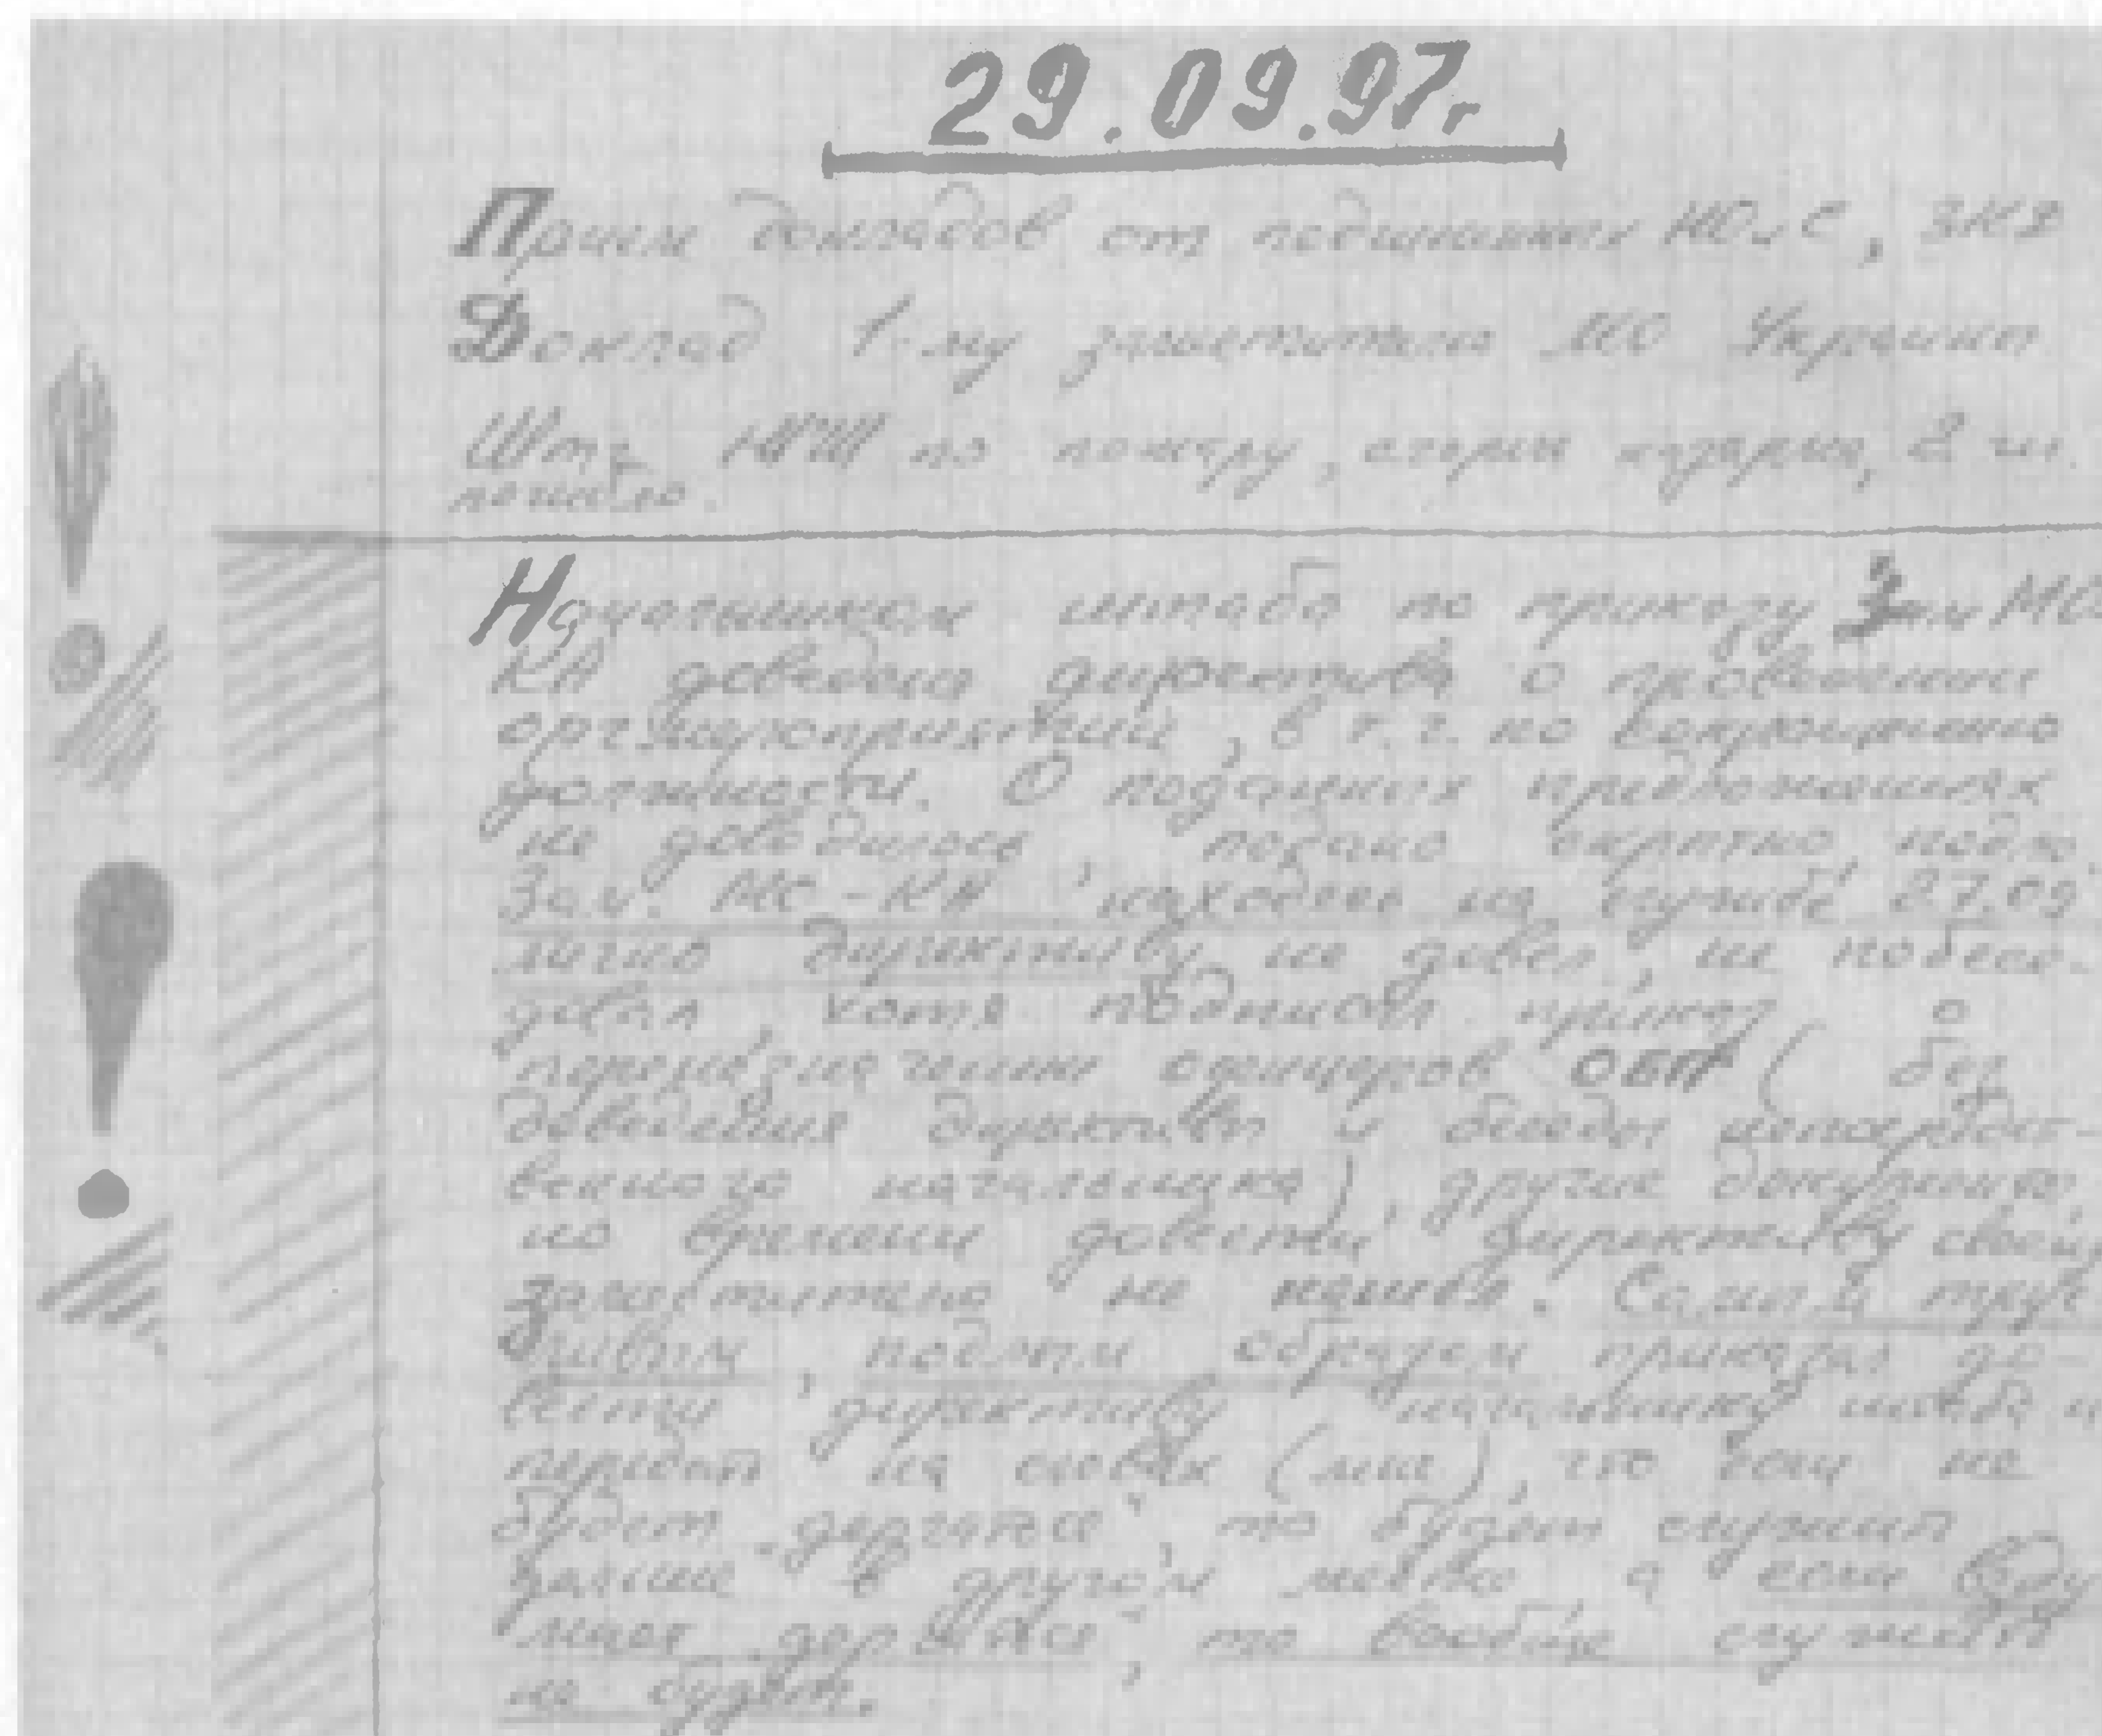 29.09.97г
Прием докладов от подшефных НОиС, ЗНЗ
Доклад 1-му заместителю МО Украины
Штз НГШ по пожару, сгорел казарма, 2 чел.
погибло.
Начальником штаба по приказу Зам МО
КА доведена директива о проведении
оргмероприятий, в т.ч. по сокращению
должности. О поданных предложениях
не доводилось, подано скрытно, подло.
Зам. МО-КА находясь на службе 27.09
лично директиву не довел, не побесе-
довал, хотя подписал приказ о
перемещении офицеров ОБП (без
доведения директивы и беседы непосредст-
венного начальника), другие документы,
но времени довести директиву своему
заместителю не нашел. Самым трус-
ливым, подлым образом приказал до-
вести директиву начальнику штаба и
передать на словах (мне), что если не
будет "дергаться", то будет служить
дальше в другом месте, а если взду
мает "дергаться", то вообще служить
не будет.